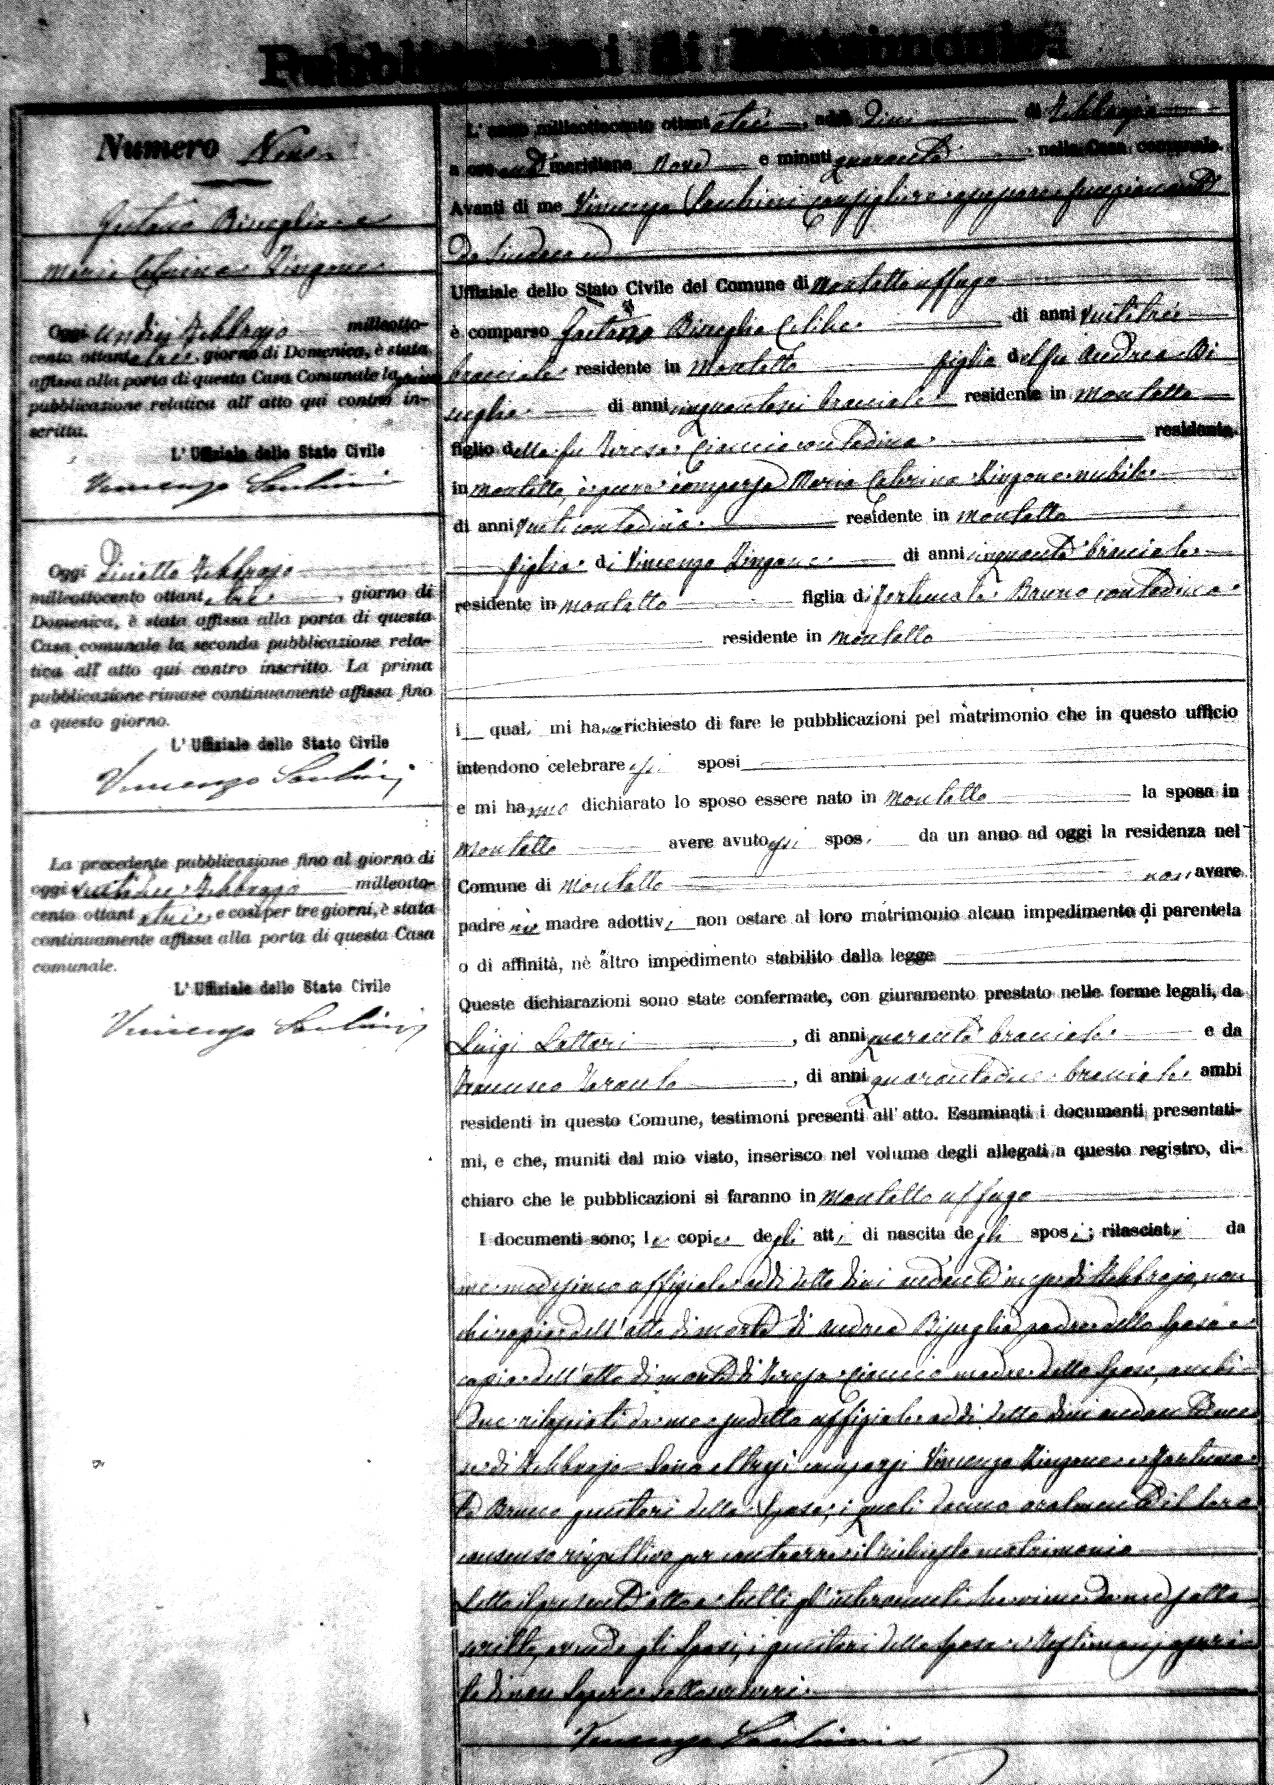 Pubblicazioni di Matrimonio
Numero Nove
Gaetano Bisuglia e
Maria Caterina Zingone
Oggi undici Febbrajo milleotto-
cento ottantatre, giorno di Domenica, è stata
affissa alla porta di questa Casa Comunale la prima
pubblicazione relativa all' atto qui contro in-
scritto.
L' Uffiziale dello Stato Civile
Vincenzo
Oggi diciotto Febbrajo
milleottocento ottantatre, giorno di
Domenica, è stata affissa alla porta di questa
Casa comunale la seconda pubblicazione rela-
tiva all' atto qui contro inscritto. La prima
pubblicazione rimase continuamente affissa fino
a questo giorno.
L' Uffiziale dello Stato Civile
Vincenzo
La precedente pubblicazione fino al giorno di
oggi Febbrajo milleotto-
cento ottantatre, e così per tre giorni, è stata
continuamente affissa alla porta di questa Casa
comunale.
L' Uffiziale dello Stato Civile
Vincenzo
L' anno milleottocento ottantatre, addì dieci di Febbrajo
a ore anti meridiane nove e minuti quaranta nella Casa comunale.
Avanti di me Vincenzo Consigliere funzionante
da Sindaco ed
Uffiziale dello Stato Civile del Comune di Montalto uffugo
è comparso Gaetano Bisuglia celibe di anni ventitrè
bracciale residente in Montalto figlio del fu Andrea Bi
suglia di anni cinquantasei bracciale residente in Montalto
figlio della fu Teresa Ciaccio contadina residente
in Montalto, è pure comparsa Maria Caterina Zingone nubile
di anni venti contadina residente in Montalto
figlia di Vincenzo Zingone di anni cinquanta bracciale
residente in Montalto figlia di Fortunata Bruno contadina
residente in Montalto
i quali mi hanno richiesto di fare le pubblicazioni pel matrimonio che in questo ufficio
intendono celebrare essi sposi
e mi hanno dichiarato lo sposo essere nato in Montalto la sposa in
Montalto avere avuto essi sposi da un anno ad oggi la residenza nel
Comune di Montalto non avere
padre nè madre adottivi non ostare al loro matrimonio alcun impedimento di parentela
o di affinità, nè altro impedimento stabilito dalla legge
Queste dichiarazioni sono state confermate, con giuramento prestato nelle forme legali, da
Luigi Lattari, di anni quaranta bracciale e da
Francesco, di anni quarantadue bracciale ambi
residenti in questo Comune, testimoni presenti all' atto. Esaminati i documenti presentati-
mi, e che, muniti dal mio visto, inserisco nel volume degli allegati a questo registro, di-
chiaro che le pubblicazioni si faranno in Montalto uffugo
I documenti sono; le copie degli atti di nascita degli sposi; rilasciati da
me medesimo uffiziale addì detto dieci andante mese di Febbrajo, non
chè copia dell' atto di morte di Andrea Bisuglia padre dello sposo e
copia dell' atto di morte di Teresa Ciaccio madre dello sposo, ambi
due rilasciati da me sudetto uffiziale addì detto dieci andante me
se di Febbrajo. Sono altresì comparsi Vincenzo Zingone e Fortuna
ta Bruno genitori della sposa, i quali danno oralmente il loro
consenso rispettivo per contrarre il richiesto matrimonio
Letto il presente atto a tutti gl' intervenuti, viene da me sotto
scritto, avendo gli sposi, i genitori della sposa e testimonj asseri
to di non sapere sottoscrivere
Vincenzo